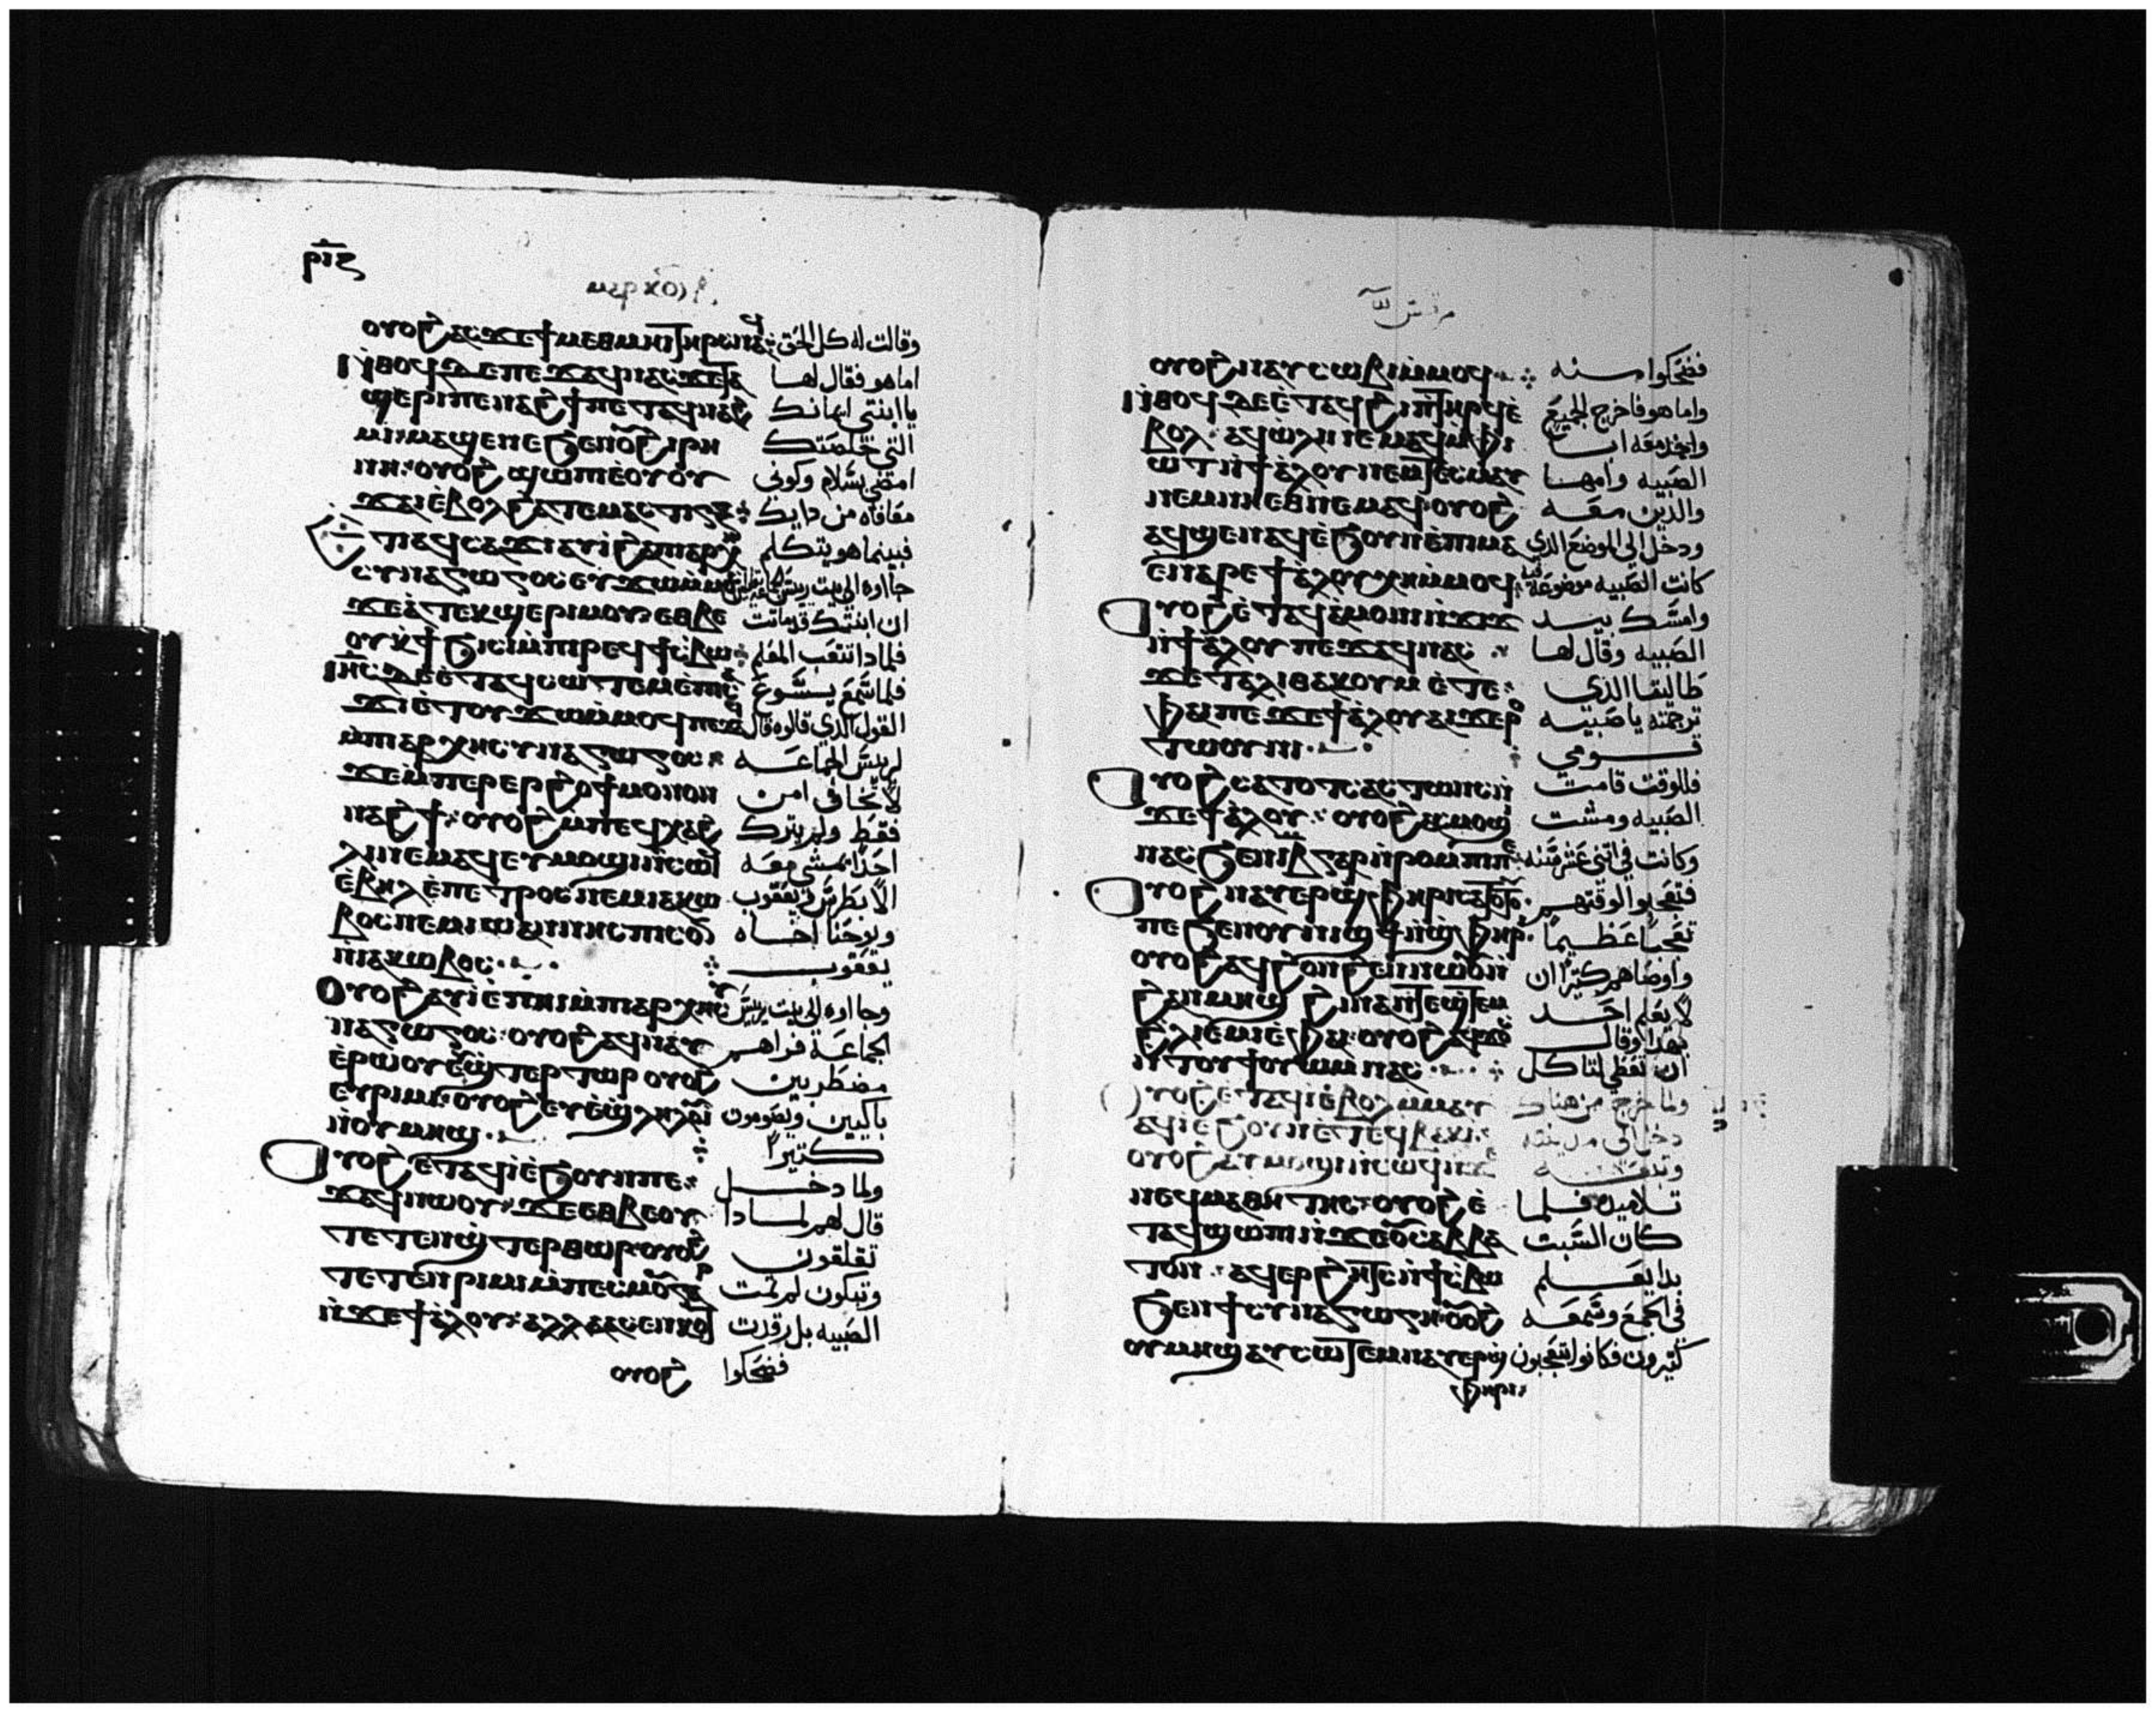 ⲣⲓⲋ
ⲟⲩⲟϩ ⲁⲥϫⲉ ϯⲙⲉⲑⲙⲏⲓ ⲧⲏⲣⲥ ⲛⲁϥ وقالت له كل الحق
ⲛ̀ⲑⲟϥ ⲇⲉ ⲡⲉϫⲁϥ ⲛⲁⲥ ϫⲉ ⲧⲁ اما هو فقال لها
ϣⲉⲣⲓ ⲡⲉⲛⲁϩϯ ⲡⲉⲧⲁϥⲛⲁϩ يا ابنتي ايمانك
ⲙⲓ ⲙⲁϣⲉ ⲛⲉ ϧⲉⲛ ⲟⲩϩⲓⲣⲏ التي خلصتك
ⲛⲏ ⲟⲩⲟϩ ϣⲱⲡⲓ ⲉ̀ⲟⲩⲟⲩ امضي بسلام وكوني
ϫⲁⲓ ⲉ̀ⲃⲟⲗ ϩⲁ ⲧⲉⲙⲁⲥⲧⲓⲅⲝ معافاه من دايك
ⲉⲧⲓ ⲁϥⲥⲁϫⲓ ⲁⲩⲓ̀ ϩⲁ ⲡⲁⲣⲭⲏ فبينما هو يتكلم
ⲥⲩⲛⲁⲅⲱⲅⲟⲥ ⲉⲩϫⲱ ⲙ̀ⲙⲟⲥ جااوه الى بيت ريس الجماعة
ϫⲉ ⲁ̀ ⲧⲉⲕϣⲉⲣⲓ ⲙⲟⲩ ⲉⲑⲃⲉ ان ابنتك قد ماتت
ⲟⲩ ⲭϯϧⲓⲥⲓ ⲙ̀ⲡⲓⲣⲉϥϯⲥⲃⲱ فلمادا تتعب المعلم
ⲓⲏⲥ ⲇⲉ ⲉ̀ⲧⲁϥⲥⲱⲧⲉⲙ ⲉ̀ⲡⲓⲥⲁ فلما سمع يسوع
ϫⲓ ⲉ̀ⲧⲟⲩϫⲱ ⲙ̀ⲙⲟϥ ⲡⲉϫⲁϥ القول الدي قالوه قال
ⲙ̀ⲡⲁⲣⲭⲏⲥⲩⲛⲁⲅⲱⲅⲟⲥ لريس الجماعه
ϫⲉ ⲙ̀ⲡⲉⲣⲉⲣϩⲟϯ ⲙⲟⲛⲟⲛ لا تخاف امن
ⲛⲁϩϯ ⲟⲩⲟϩ ⲙ̀ⲡⲉϥⲭⲁϩ فقط ولم يترك
ⲗⲓ ⲛⲉⲙⲁϥ ⲉⲩⲙⲟϣⲓ ⲛ̀ⲥⲱϥ احدا يمشي معه
ⲉ̀ⲃⲏⲗ ⲉ̀ⲡⲉⲧⲣⲟⲥ ⲛⲉⲙ ⲓⲁⲕⲱ الا بطرس ويعقوب
ⲃⲟⲥ ⲛⲉⲙ ⲓⲱⲁⲛⲛⲏⲥ ⲡⲥⲟⲛ ويوحنا اخاه
ⲛ̀ⲓⲁⲕⲱⲃⲟⲥ يعقوب
ⲟⲩⲟϩ ⲁⲩⲓ̀ ⲉ̀ⲡⲏⲓ ⲙ̀ⲡⲁⲣⲭⲏⲥⲩ وجااوه الى بيت ريس
ⲛⲁⲅⲱⲅⲟⲥ ⲟⲩⲟϩ ⲁϥⲛⲁⲩ الجماعة فراهم
ⲉ̀ⲣⲱⲟⲩ ⲉⲩϣⲧⲉⲣⲧⲱⲣ ⲟⲩⲟϩ مضطربين
ⲉⲩⲣⲓⲙⲓ ⲟⲩⲟϩ ⲉⲩⲉϣⲗⲏⲗⲟⲩⲓ̀ باكيين
ⲛ̀ⲟⲩⲙⲏϣ كتيرا
ⲟⲩⲟϩ ⲉ̀ⲧⲁϥⲓ̀ ⲉ̀ϧⲟⲩⲛ ⲡⲉ ولما دخل
ϫⲁϥ ⲛⲱⲟⲩ ϫⲉ ⲉⲑⲃⲉⲟⲩ قال لهم لمادا
ⲧⲉⲧⲉⲛϣⲧⲉⲣⲑⲱⲣ ⲟⲩⲟϩ تقلقون
ⲧⲉⲧⲉⲛⲣⲓⲙⲓ ⲙ̀ⲡⲉⲥⲙⲟⲩ وتبكون لم تمت
ⲛ̀ϫⲉ ϯⲁ̀ⲗⲟⲩ ⲁⲗⲗⲁ ⲁⲥⲉⲛⲕⲟⲧ الصبيه بل رقدت
ⲟⲩⲟϩ فضحكوا
ⲟⲩⲟϩ ⲛⲁⲩⲥⲱⲃⲓ ⲙ̀ⲙⲟϥ فضحكوا منه
ⲛ̀ⲑⲟϥ ⲇⲉ ⲉ̀ⲧⲁϥϩⲓ ⲡⲧⲏⲣϥ ⲉ̀ واما هو فاخرج الجميع
ⲃⲟⲗ ⲁϥⲱ̀ⲗⲓ ⲛⲉⲙⲁϥ ⲙ̀ⲫⲓ واخد معه ابا
ⲱⲧ ⲛ̀ϯⲁ̀ⲗⲟⲩ ⲛⲉⲙ ⲧⲉⲥⲙⲁⲩ الصبيه وامها
ⲛⲉⲙ ⲛⲏ ⲉⲑⲛⲉⲙⲁϥ ⲟⲩⲟϩ والدين معه
ⲁϥϣⲉ ⲛⲁϥ ⲉ̀ϧⲟⲩⲛ ⲉ̀ⲡⲓⲙⲁ ودخل الى الموضع الدي
ⲉ̀ⲛⲁⲣⲉ ϯⲁ̀ⲗⲟⲩ ⲭⲏ ⲙ̀ⲙⲟϥ كانت الصبيه موضوعة فيه
ⲟⲩⲟϩ ⲉ̀ⲧⲁϥⲁ̀ⲙⲟⲛⲓ ⲛ̀ⲧϫⲓϫ وامسك بيد
ⲛ̀ϯⲁ̀ⲗⲟⲩ ⲡⲉϫⲁϥ ⲛⲁⲥ الصبيه وقال لها
ϫⲉ ⲧⲁⲗⲓⲑⲁ ⲕⲟⲩⲙ ⲉ̀ⲧⲉ طاليثا الدي
ⲫⲁⲓ ⲡⲉ ϫⲉ ϯⲁ̀ⲗⲟⲩ ⲁⲓϫⲉⲣⲟ ترجمته يا صبيه
ⲧⲱⲟⲩⲛⲓ قومي
ⲟⲩⲟϩ ⲥⲁⲧⲟⲧⲥ ⲁⲥⲧⲱⲛⲥ ⲛ̀ فللوقت قامت
ϫⲉ ϯⲁ̀ⲗⲟⲩ ⲟⲩⲟϩ ⲁⲥⲙⲟϣⲓ الصبيه ومشت
ⲛⲁⲥϧⲉⲛ ⲓⲃ ⲅⲁⲣ ⲛ̀ⲣⲟⲙⲡⲓ ⲡⲉ وكانت في اتنى عشر سنه
ⲟⲩⲟϩ ⲛⲁⲩⲉⲣϣⲫⲏⲣⲓ ⲥⲁⲧⲟⲧⲟⲩ فتعجبوا لوقتهم
ⲡⲉ ϧⲉⲛ ⲟⲩⲛⲓϣϯ ⲛ̀ϣⲫⲏⲣⲓ تعجبا عظيما
ⲟⲩⲟϩ ⲁϥϩⲟⲛϩⲉⲛ ⲛⲱⲟⲩ ⲛ̀ واوصاهم كتيرا ان
ϩⲁⲛⲙⲏϣ ϩⲓⲛⲁ ⲛ̀ⲧⲉϣⲧⲉⲙ لا يعلم احد
ϩⲗⲓ ⲉ̀ⲙⲓ ⲉ̀ⲫⲁⲓ ⲟⲩⲟϩ ⲁϥϫⲟⲥ بهدا وقال
ⲛ̀ⲧⲟⲩϯⲟⲩⲱⲙ ⲛⲁⲥ ان تعطي لتاكل
ⲟⲩⲟϩ ⲉ̀ⲧⲁϥⲓ̀ ⲉ̀ⲃⲟⲗ ⲙⲙⲁⲩ ولما خرج من هناك
ⲁϥⲓ̀ ⲉ̀ϧⲟⲩⲛ ⲉ̀ⲧⲉϥⲃⲁⲕⲓ دخل الى مدينته
ⲟⲩⲟϩ ⲁⲩⲙⲟϣⲓ ⲛ̀ⲥⲱϥ ⲛ̀ϫⲉ وتبعه
ⲛⲉϥⲙⲁⲑⲏⲧⲏⲥ ⲟⲩⲟϩ ⲉ̀ تلاميده فلما
ⲧⲁϥϣⲱⲡⲓ ⲛ̀ϫⲉ ⲟⲩⲥⲁⲃⲃⲁ كان السبت
ⲧⲟⲛ ⲁϥⲉⲣϩⲏⲧⲥ ⲛ̀ϯⲥⲃⲱ بدا يعلم
ϧⲉⲛ ϯⲥⲩⲛⲁⲅⲱⲅⲏ ⲟⲩⲟϩ في المجمع وسمعه
ⲟⲩⲙⲏϣ ⲁⲩⲥⲱⲧⲉⲙ ⲛⲁⲩⲉⲣϣ كتيرون فكانوا يتعجبون
ⲫⲏⲣⲓ